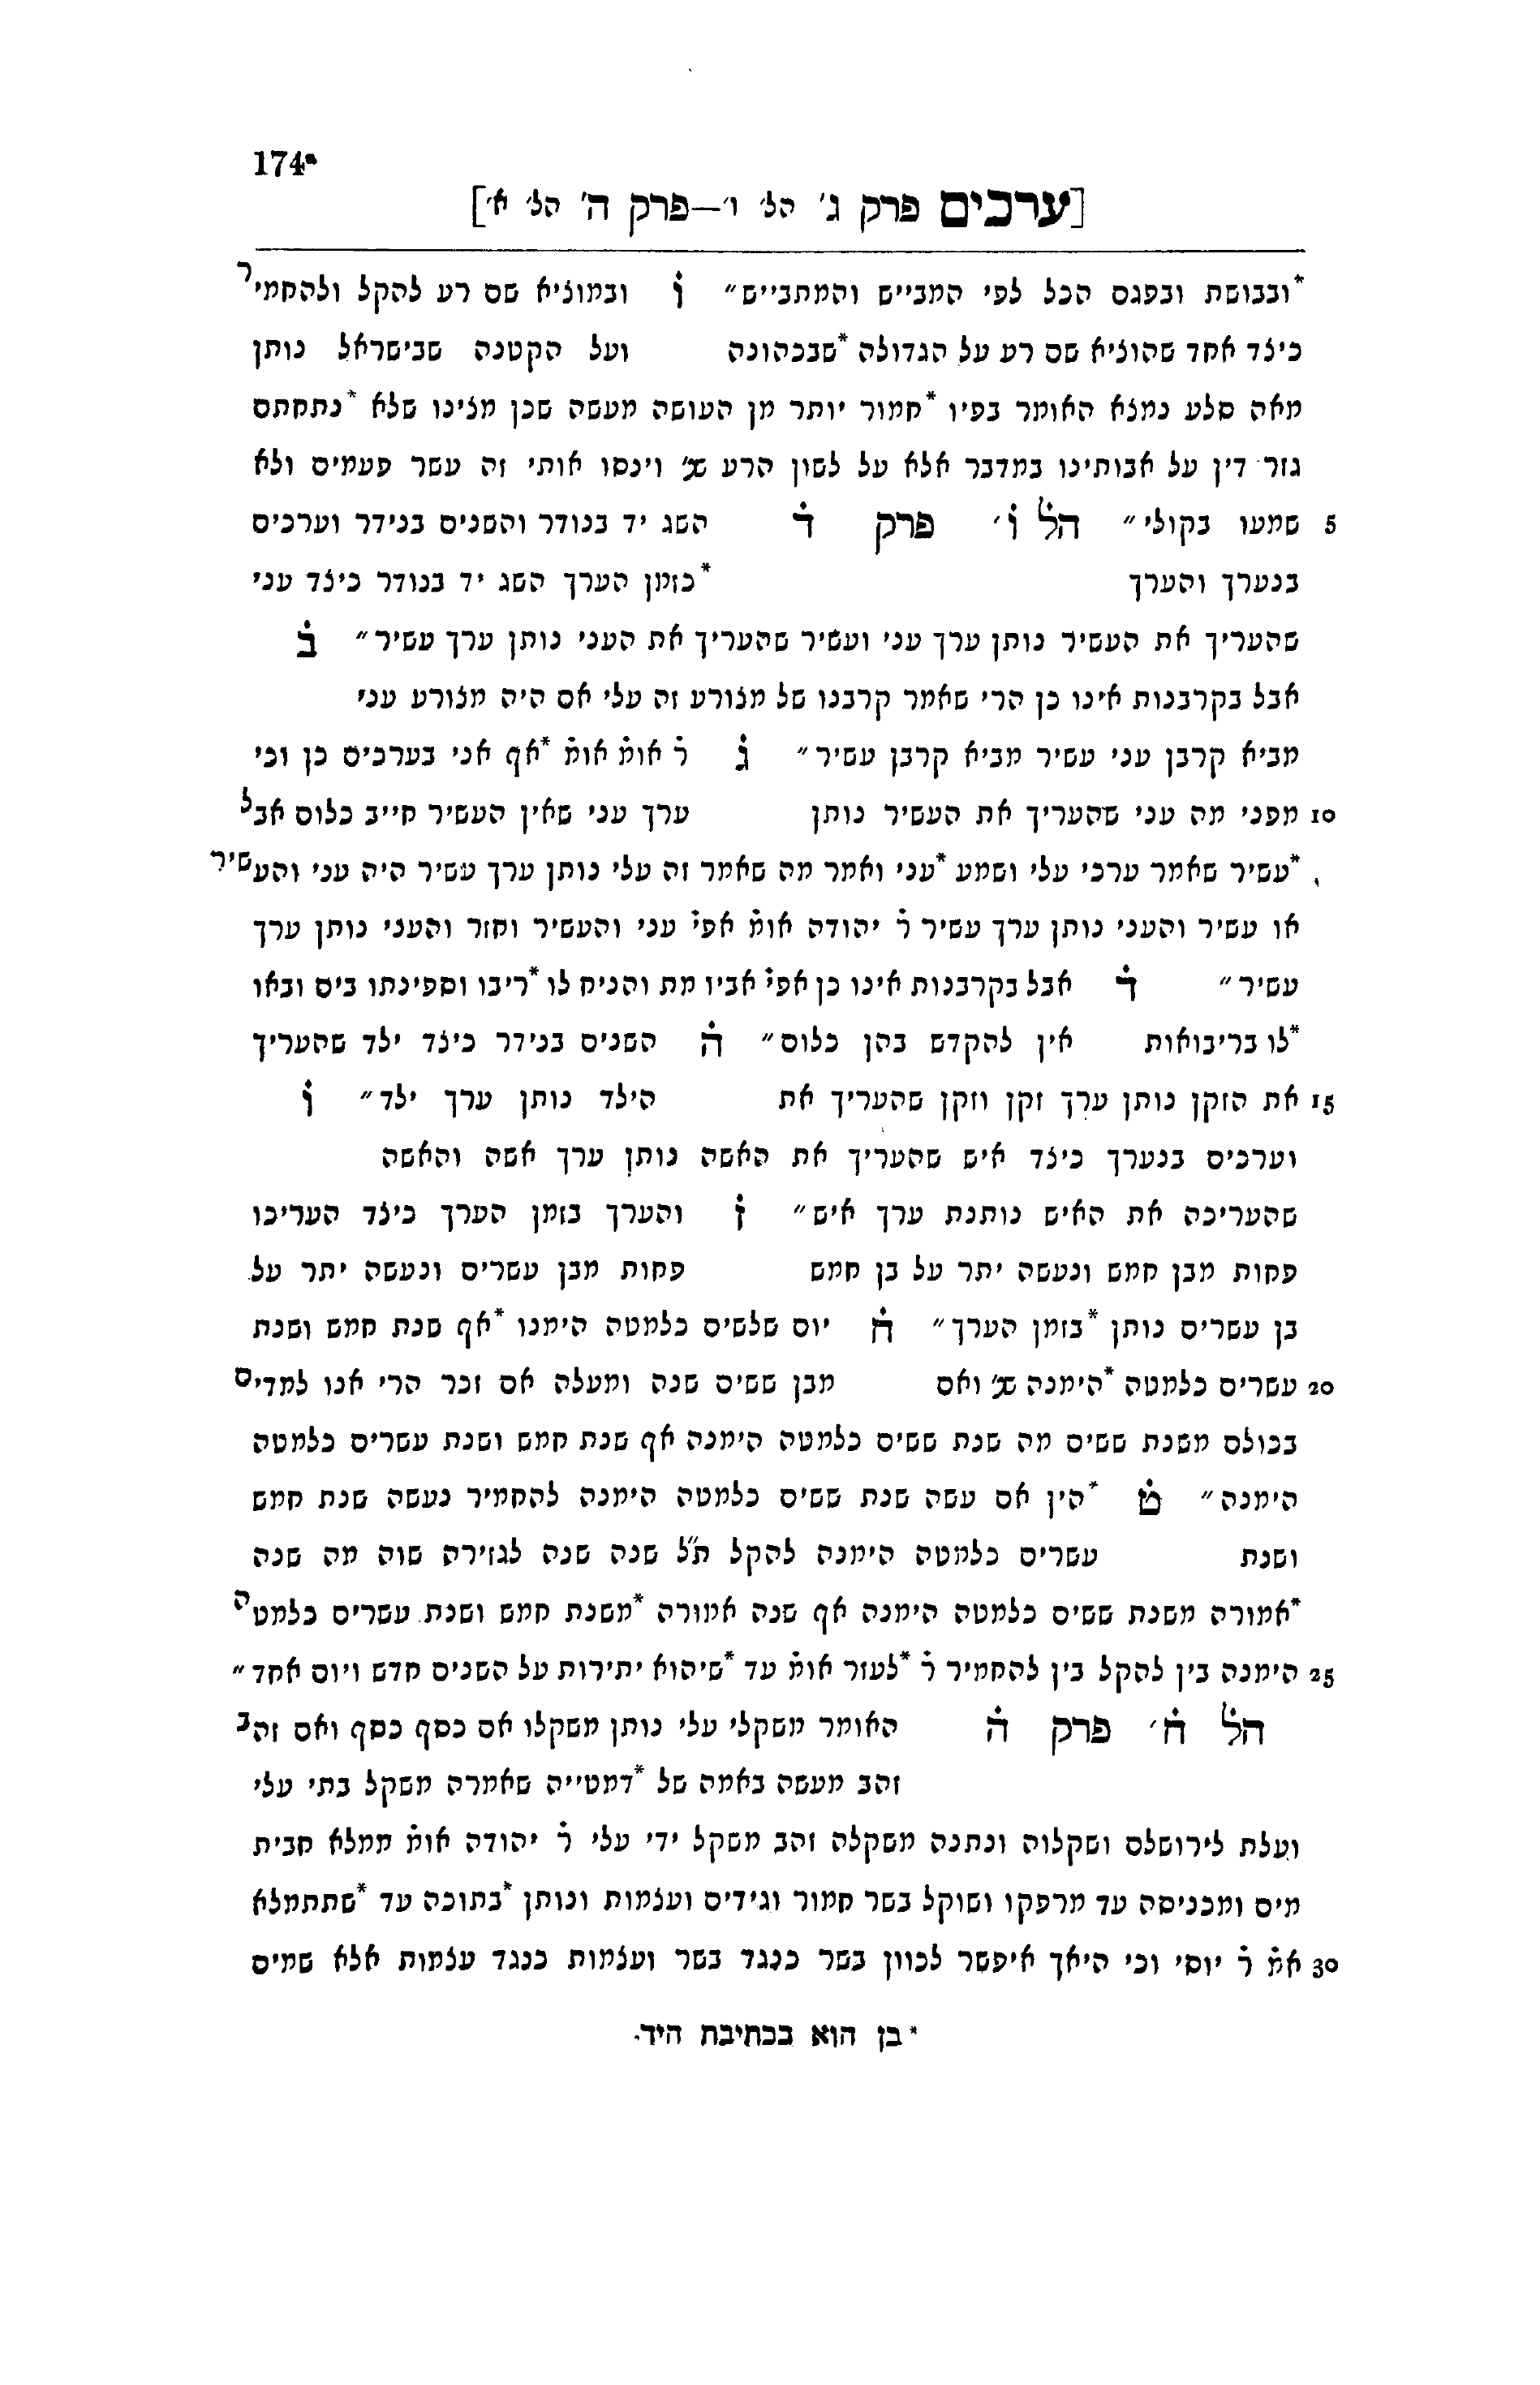 174ª
[ערכים פרק ג' הל' ו'—פרק ה' הל' א']
*ובבושת ובפגם הכל לפי המבייש והמתבייש״ ו̇ ובמוציא שם רע להקל ולהחמיר
כיצד אחד שהוציא שם רע על הגדולה *שבכהונה ועל הקטנה שבישראל נותן
מאה סלע נמצא האומר בפיו *חמור יותר מן העושה מעשה שכן מצינו שלא *נתחתם
גזר דין על אבותינו במדבר אלא על לשון הרע שנ' וינסו אותי זה עשר פעמים ולא
5 שמעו בקולי״ הל̇ ו̇' פרק ד̇ השג יד בנודר והשנים בנידר וערכים
בנערך והערך *כזמן הערך השג יד בנודר כיצד עני
שהעריך את העשיר נותן ערך עני ועשיר שהעריך את העני נותן ערך עשיר״ ב̇
אבל בקרבנות אינו כן הרי שאמר קרבנו של מצורע זה עלי אם היה מצורע עני
מביא קרבן עני עשיר מביא קרבן עשיר״ ג̇ ר̇ אומ̇ אומ̇ *אף אני בערכים כן וכי
10 מפני מה עני שהעריך את העשיר נותן ערך עני שאין העשיר חייב כלום אבל
*עשיר שאמר ערכי עלי ושמע *עני ואמר מה שאמר זה עלי נותן ערך עשיר היה עני והעשיר
או עשיר והעני נותן ערך עשיר ר̇ יהודה אומ̇ אפי̇ עני והעשיר וחזר והעני נותן ערך
עשיר״ ד̇ אבל בקרבנות אינו כן אפי̇ אביו מת והניח לו *ריבו וספינתו בים ובאו
*לו בריבואות אין להקדש בהן כלום״ ה̇ השנים בנידר כיצד ילד שהעריך
15 את הזקן נותן ערך זקן וזקן שהעריך את הילד נותן ערך ילד״ ו̇
וערכים בנערך כיצד איש שהעריך את האשה נותן ערך אשה והאשה
שהעריכה את האיש נותנת ערך איש״ ז̇ והערך בזמן הערך כיצד העריכו
פחות מבן חמש ונעשה יתר על בן חמש פחות מבן עשרים ונעשה יתר על
בן עשרים נותן *בזמן הערך״ ח̇ יום שלשים כלמטה הימנו *אף שנת חמש ושנת
20 עשרים כלמטה *הימנה שנ' ואם מבן ששים שנה ומעלה אם זכר הרי אנו למדים
בכולם משנת ששים מה שנת ששים כלמטה הימנה אף שנת חמש ושנת עשרים כלמטה
הימנה״ ט̇ *הין אם עשה שנת ששים כלמטה הימנה להחמיר נעשה שנת חמש
ושנת עשרים כלמטה הימנה להקל ת״ל שנה שנה לגזירה שוה מה שנה
*אמורה משנת ששים כלמטה הימנה אף שנה אמורה *משנת חמש ושנת עשרים כלמטה
25 הימנה בין להקל בין להחמיר ר̇ *לעזר אומ̇ עד *שיהוא יתירות על השנים חדש ויום אחד״
הל̇ ח̇' פרק ה̇ האומר משקלי עלי נותן משקלו אם כסף כסף ואם זהב
זהב מעשה באמה של *דמטייה שאמרה משקל בתי עלי
ועלת לירושלם ושקלוה ונתנה משקלה זהב משקל ידי עלי ר̇ יהודה אומ̇ ממלא חבית
מים ומכניסה עד מרפקו ושוקל בשר חמור וגידים ועצמות ונותן *בתוכה עד *שתתמלא
30 אמ̇ ר̇ יוסי וכי היאך איפשר לכווין בשר כנגד בשר ועצמות כנגד עצמות אלא שמים
* כן הוא בכתיבת היד.